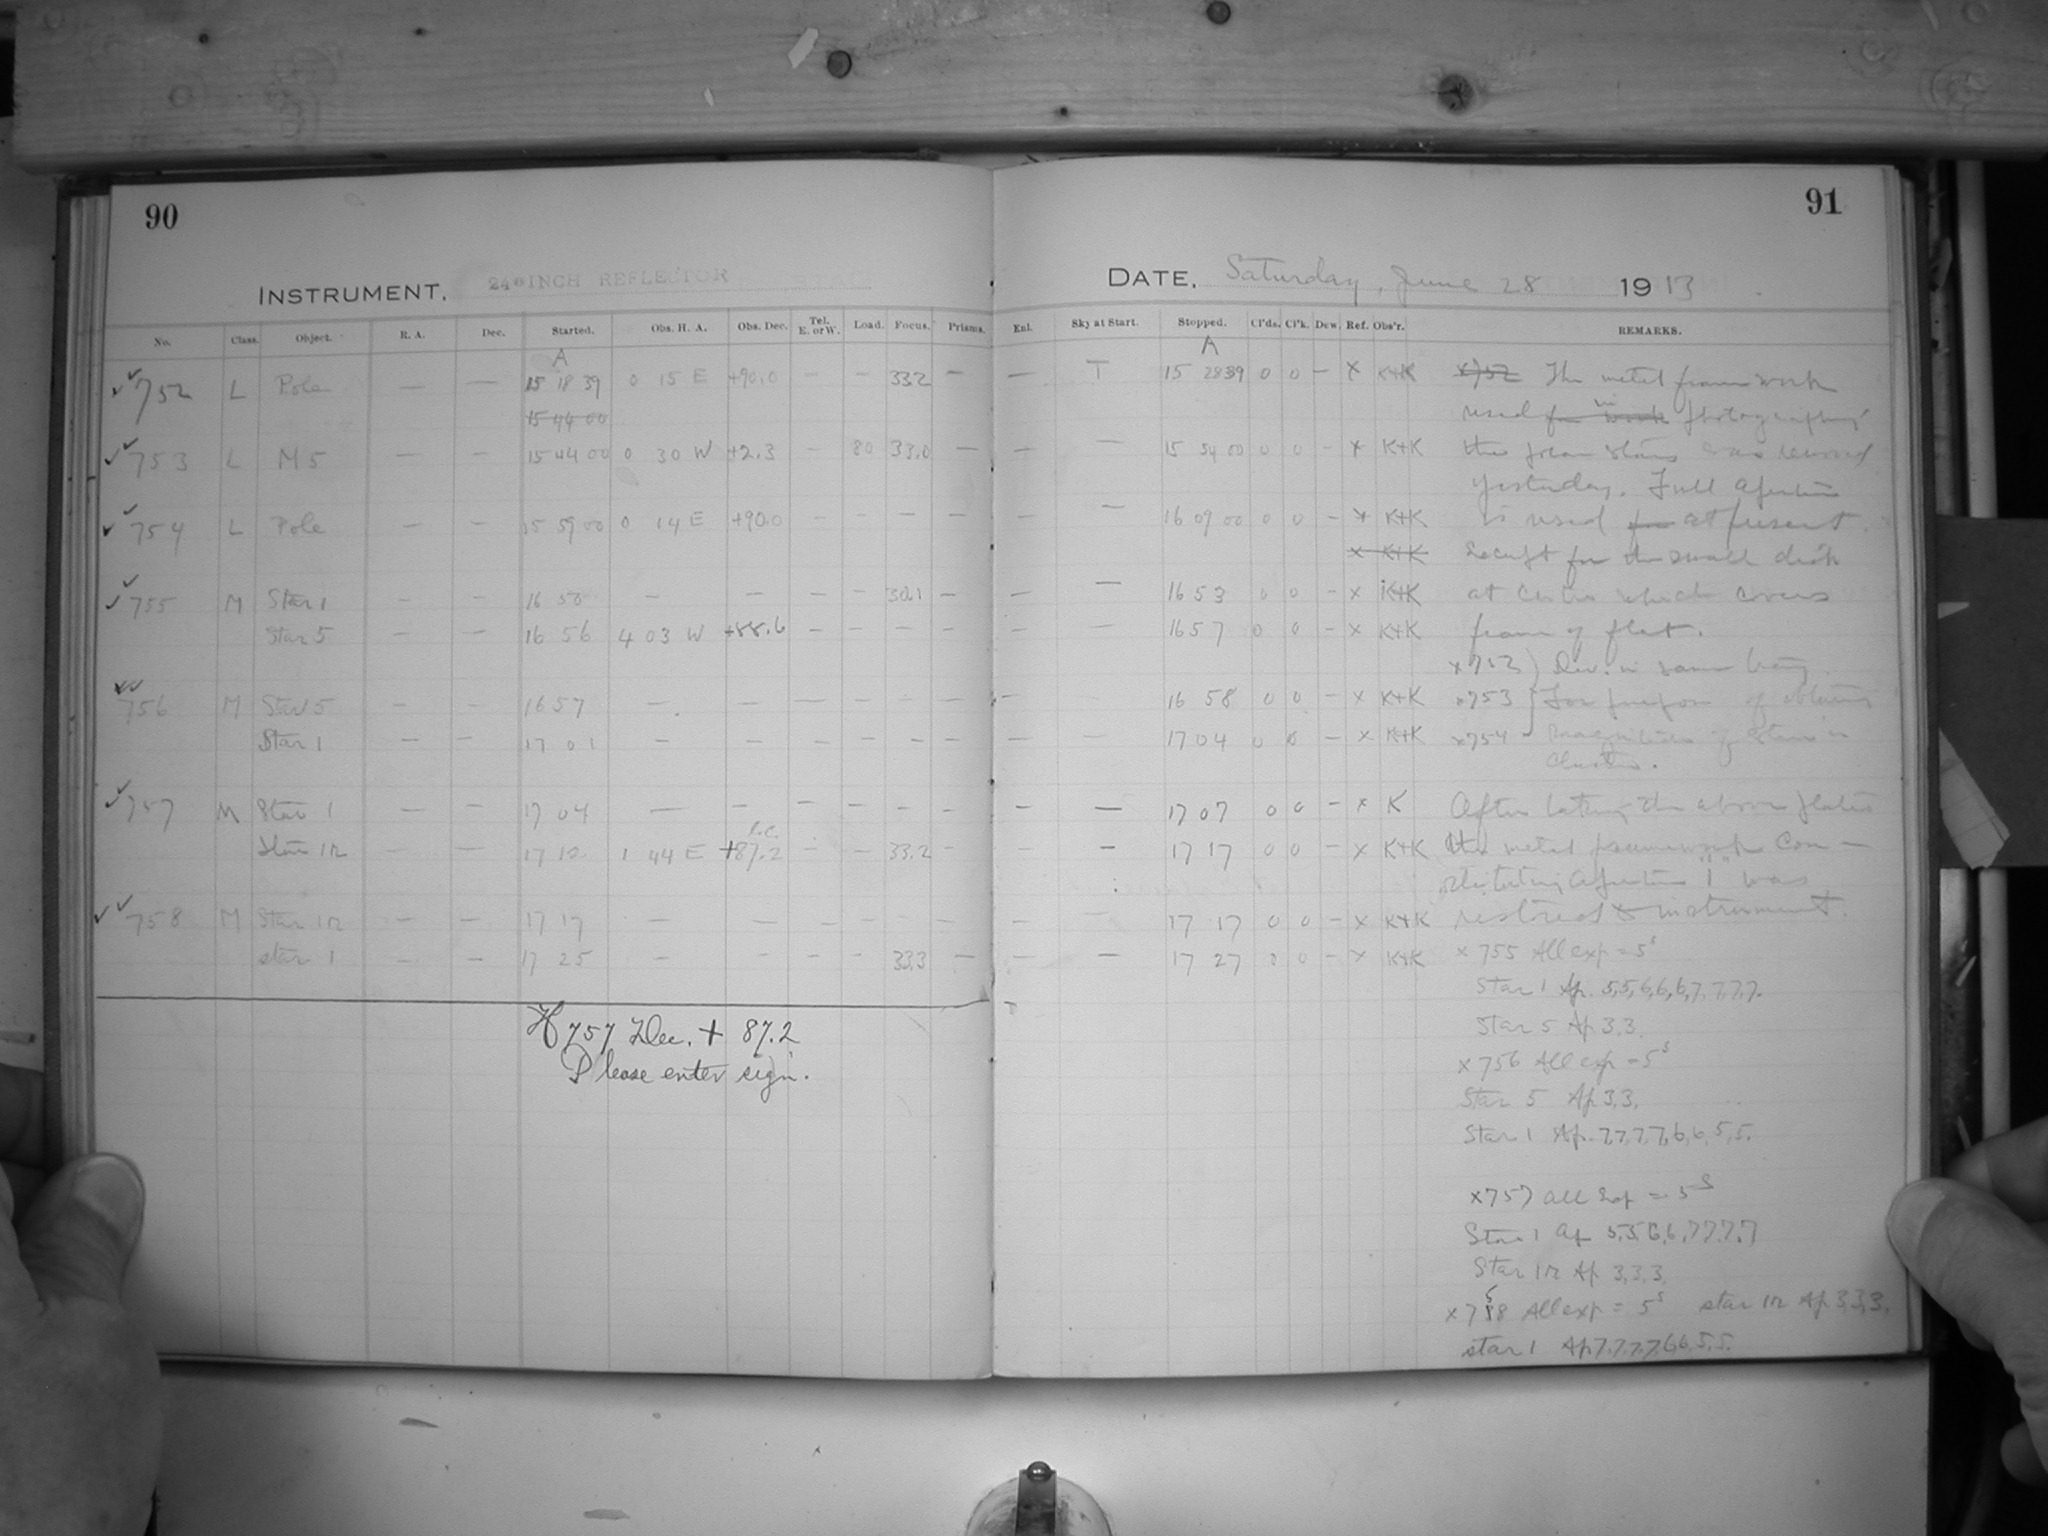 90
INSTRUMENT. 24-INCH REFLECTOR
No. Class. Object. R. A. Dec. Started. Obs. H. A. Obs. Dec. Tel. E. or W. Load. Focus. Prisms.
A
752 L Pole — — 15 18 39 0 15 E +90.0 — — 33.2 —
15 44 00
753 L M 5 — — 15 44 00 0 30 W +2.3 — 80 33.0 —
754 L Pole — — 15 59 00 0 14 E +90.0 — — — —
755 M Star 1 — — 16 50 — — — — 30.1 —
Star 5 — — 16 56 4 03 W +88.6 — — — —
756 M Star 5 — — 16 57 — — — — — —
Star 1 — — 17 01 — — — — — —
757 M Star 1 — — 17 04 — — — — — —
Star 1r — — 17 12 1 44 E +87.2 — — 33.2 —
758 M Star 1r — — 17 17 — — — — — —
star 1 — — 17 25 — — — — 33.3 —
H 757 Dec. + 87.2
Please enter sign.
91
DATE. Saturday, June 28 1913
Enl. Sky at Start. Stopped. Cl'ds. Cl'k. Dew. Ref. Obs'r. REMARKS.
A
— T 15 28 39 0 0 — x K+K x752 The metal framework
used for work in photographing
— — 15 54 00 0 0 — x K+K the polar stars was removed
yesterday. Full aperture
— — 16 09 00 0 0 — x K+K is used for at present
x K+K except for the small disk
— — 16 53 0 0 — x K+K at centre which covers
— — 16 57 0 0 — x K+K frame of flat.
x752 } Dev. in same tray
— 16 58 0 0 — x K+K x753 } For purpose of obtaining
— — 17 04 0 0 — x K+K x754 } magnitudes of stars in
cluster.
— — 17 07 0 0 — x K After taking the above plates
— — 17 17 0 0 — x K+K the metal framework con-
stituting aperture "1" was
— — 17 17 0 0 — x K+K restored to instrument.
— — 17 27 0 0 — x K+K x 755 All exp = 5s
Star 1 Ap. 5,5,6,6,6,7,7,7,7.
Star 5 Ap 3,3.
x 756 All exp = 5s
Star 5 Ap 3,3.
Star 1 Ap. 7,7,7,7,6,6,5,5.
x757 all exp = 5s
Star 1 Ap 5,5,6,6,7,7,7,7
Star 1r Ap 3,3,3.
x 758 All exp = 5s star 1r Ap 3,3,3.
star 1 Ap 7,7,7,7,6,6,5,5.